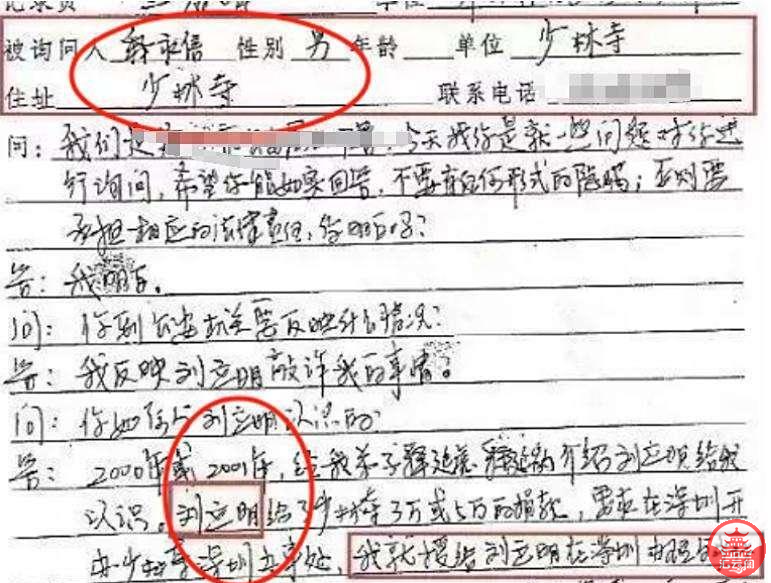 被询问人 释永信 性别 男 年龄 单位 少林寺
住址 少林寺 联系电话
问：我们是 今天找你是就一些问题对你进
行询问，希望你能如实回答，不要有任何形式的隐瞒；否则要
承担相应的法律责任，你明白吗？
答：我明白。
问：你到公安机关要反映什么情况？
答：我反映刘立明敲诈我的事情。
问：你如何与刘立明认识的
答：2000年或2001年，经我弟子释延 介绍刘立明给我
认识。刘立明给了少林寺3万或5万的捐款，要求在深圳开
办少林寺深圳办事处，我就授给刘立明在深圳